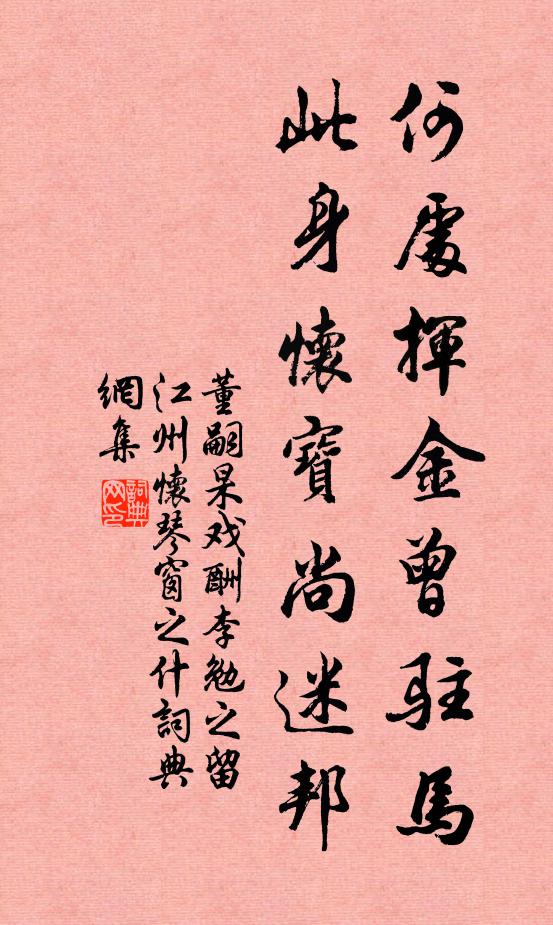 何處揮金曾駐馬
此身懷寶尚迷邦
董嗣杲戏酬李勉之留
江州懷琴窗之什詞典
網集
詞典網印